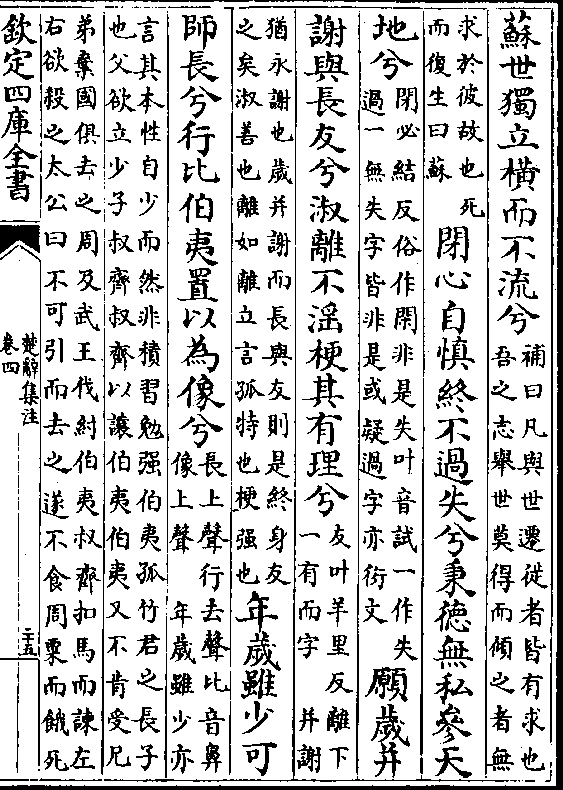 蘇世獨立橫而不流兮
補曰凡與世遷徙者皆有求也
吾之志舉世莫得而傾之者無
求於彼故也死
而復生曰蘇
閉心自慎終不過失兮秉徳無私參天
地兮
閉必結反俗作閑非是失叶音試一作失
過一無失字皆非是或疑過字亦衍文
願歲并
謝與長友兮淑離不淫梗其有理兮
友叶羊里反離下
一有而字 并謝
猶永謝也歲并謝而長與友則是終身友
之矣淑善也離如離立言孤特也梗强也
年歲雖少可
師長兮行比伯夷置以為像兮
長上聲行去聲比音鼻
像上聲 年歲雖少亦
言其本性自少而然非積習勉强伯夷孤竹君之長子
也父欲立少子叔齊叔齊以讓伯夷伯夷又不肯受兄
弟棄國俱去之周及武王伐紂伯夷叔齊扣馬而諫左
右欲殺之太公曰不可引而去之遂不食周粟而餓死
欽定四庫全書
楚辭集注
卷四
二十五